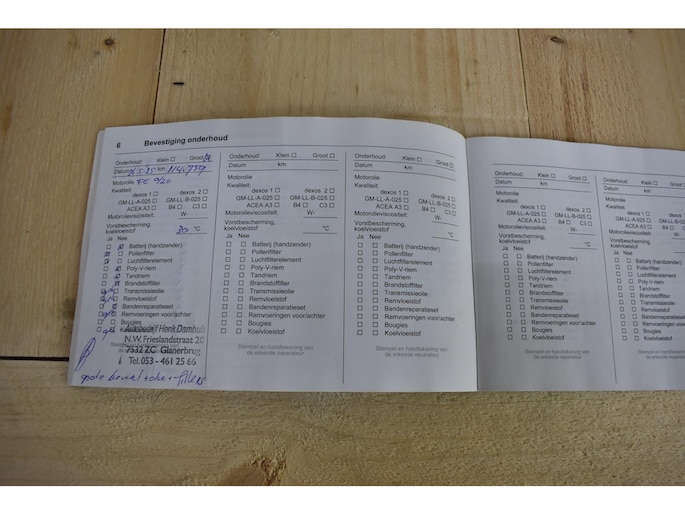 6 Bevestiging onderhoud
Onderhoud: Klein ☐ Groot
Datum km 114.759
Motorolie
Kwaliteit:
dexos 1 ☐ dexos 2 ☐
GM-LL-A-025 ☐ GM-LL-B-025 ☐
ACEA A3 ☐ B4 ☐ C3 ☐
Motorolieviscositeit: W-
Vorstbescherming,
koelvloeistof 30 °C
Ja Nee
Batterij (handzender)
Pollenfilter
Luchtfilterelement
Poly-V-riem
Tandriem
Brandstoffilter
Transmissieolie
Remvloeistof
Bandenreparatieset
Remvoeringen voor/achter
Bougies
Koelvloeistof
Autobedrijf Henk Damhuis
N.W. Frieslandstraat 20
7532 ZC Glanerbrug
Tel. 053 - 461 25 66
Onderhoud: Klein ☐ Groot ☐
Datum km
Motorolie
Kwaliteit:
dexos 1 ☐ dexos 2 ☐
GM-LL-A-025 ☐ GM-LL-B-025 ☐
ACEA A3 ☐ B4 ☐ C3 ☐
Motorolieviscositeit: W-
Vorstbescherming,
koelvloeistof °C
Ja Nee
☐ ☐ Batterij (handzender)
☐ ☐ Pollenfilter
☐ ☐ Luchtfilterelement
☐ ☐ Poly-V-riem
☐ ☐ Tandriem
☐ ☐ Brandstoffilter
☐ ☐ Transmissieolie
☐ ☐ Remvloeistof
☐ ☐ Bandenreparatieset
☐ ☐ Remvoeringen voor/achter
☐ ☐ Bougies
☐ ☐ Koelvloeistof
Stempel en handtekening van
de erkende reparateur
Onderhoud: Klein ☐ Groot ☐
Datum km
Motorolie
Kwaliteit:
dexos 1 ☐ dexos 2 ☐
GM-LL-A-025 ☐ GM-LL-B-025 ☐
ACEA A3 ☐ B4 ☐ C3 ☐
Motorolieviscositeit: W-
Vorstbescherming,
koelvloeistof °C
Ja Nee
☐ ☐ Batterij (handzender)
☐ ☐ Pollenfilter
☐ ☐ Luchtfilterelement
☐ ☐ Poly-V-riem
☐ ☐ Tandriem
☐ ☐ Brandstoffilter
☐ ☐ Transmissieolie
☐ ☐ Remvloeistof
☐ ☐ Bandenreparatieset
☐ ☐ Remvoeringen voor/achter
☐ ☐ Bougies
☐ ☐ Koelvloeistof
Stempel en handtekening van
de erkende reparateur
Onderhoud: Klein ☐ Groot ☐
Datum km
Motorolie
Kwaliteit:
dexos 1 ☐ dexos 2 ☐
GM-LL-A-025 ☐ GM-LL-B-025 ☐
ACEA A3 ☐ B4 ☐ C3 ☐
Motorolieviscositeit: W-
Vorstbescherming,
koelvloeistof °C
Ja Nee
☐ ☐ Batterij (handzender)
☐ ☐ Pollenfilter
☐ ☐ Luchtfilterelement
☐ ☐ Poly-V-riem
☐ ☐ Tandriem
☐ ☐ Brandstoffilter
☐ ☐ Transmissieolie
☐ ☐ Remvloeistof
☐ ☐ Bandenreparatieset
☐ ☐ Remvoeringen voor/achter
☐ ☐ Bougies
☐ ☐ Koelvloeistof
Stempel en handtekening van
de erkende reparateur
Onderhoud: Klein ☐
Datum km
Motorolie
Kwaliteit:
dexos 1
GM-LL-A-025
ACEA A3
Motorolieviscositeit:
Vorstbescherming,
koelvloeistof
Ja Nee
☐ ☐ Batterij (handzender)
☐ ☐ Pollenfilter
☐ ☐ Luchtfilterelement
☐ ☐ Poly-V-riem
☐ ☐ Tandriem
☐ ☐ Brandstoffilter
☐ ☐ Transmissieolie
☐ ☐ Remvloeistof